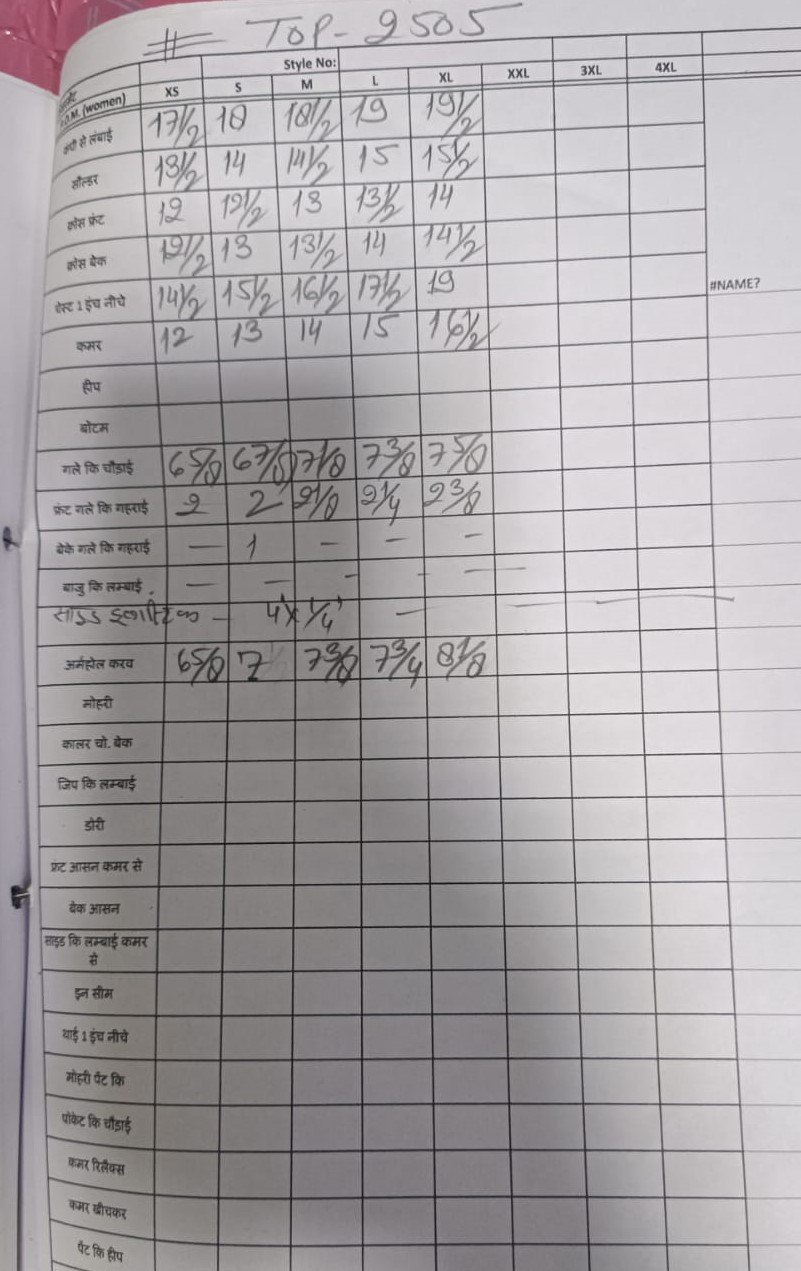 # TOP-2505
Style No:
(women) XS S M L XL XXL 3XL 4XL
से लंबाई 17 1/2 18 18 1/2 19 19 1/2
सोल्डर 13 1/2 14 14 1/2 15 15 1/2
क्रोस फ्रंट 12 12 1/2 13 13 1/2 14
क्रोस बेक 12 1/2 13 13 1/2 14 14 1/2
चेस्ट 1 इंच नीचे 14 1/2 15 1/2 16 1/2 17 1/2 19
#NAME?
कमर 12 13 14 15 16 1/2
हीप
बोटम
गले कि चौड़ाई 6 5/8 6 7/8 7 1/8 7 3/8 7 5/8
फ्रंट गले कि गहराई 2 2 2 1/8 2 1/4 2 3/8
बेक गले कि गहराई — 1 – – –
बाजु कि लम्बाई — — - - — —
साइड इलास्टिक – 4"x 1/4" —
अर्महोल करव 6 5/8 7 7 3/8 7 3/4 8 1/8
मोहरी
कालर चो. बेक
जिप कि लम्बाई
डोरी
फ्रंट आसन कमर से
बेक आसन
साइड कि लम्बाई कमर
से
इन सीम
थाई 1 इंच नीचे
मोहरी पैंट कि
पोकेट कि चौड़ाई
कमर रिलैक्स
कमर खीचकर
पैंट कि हीप